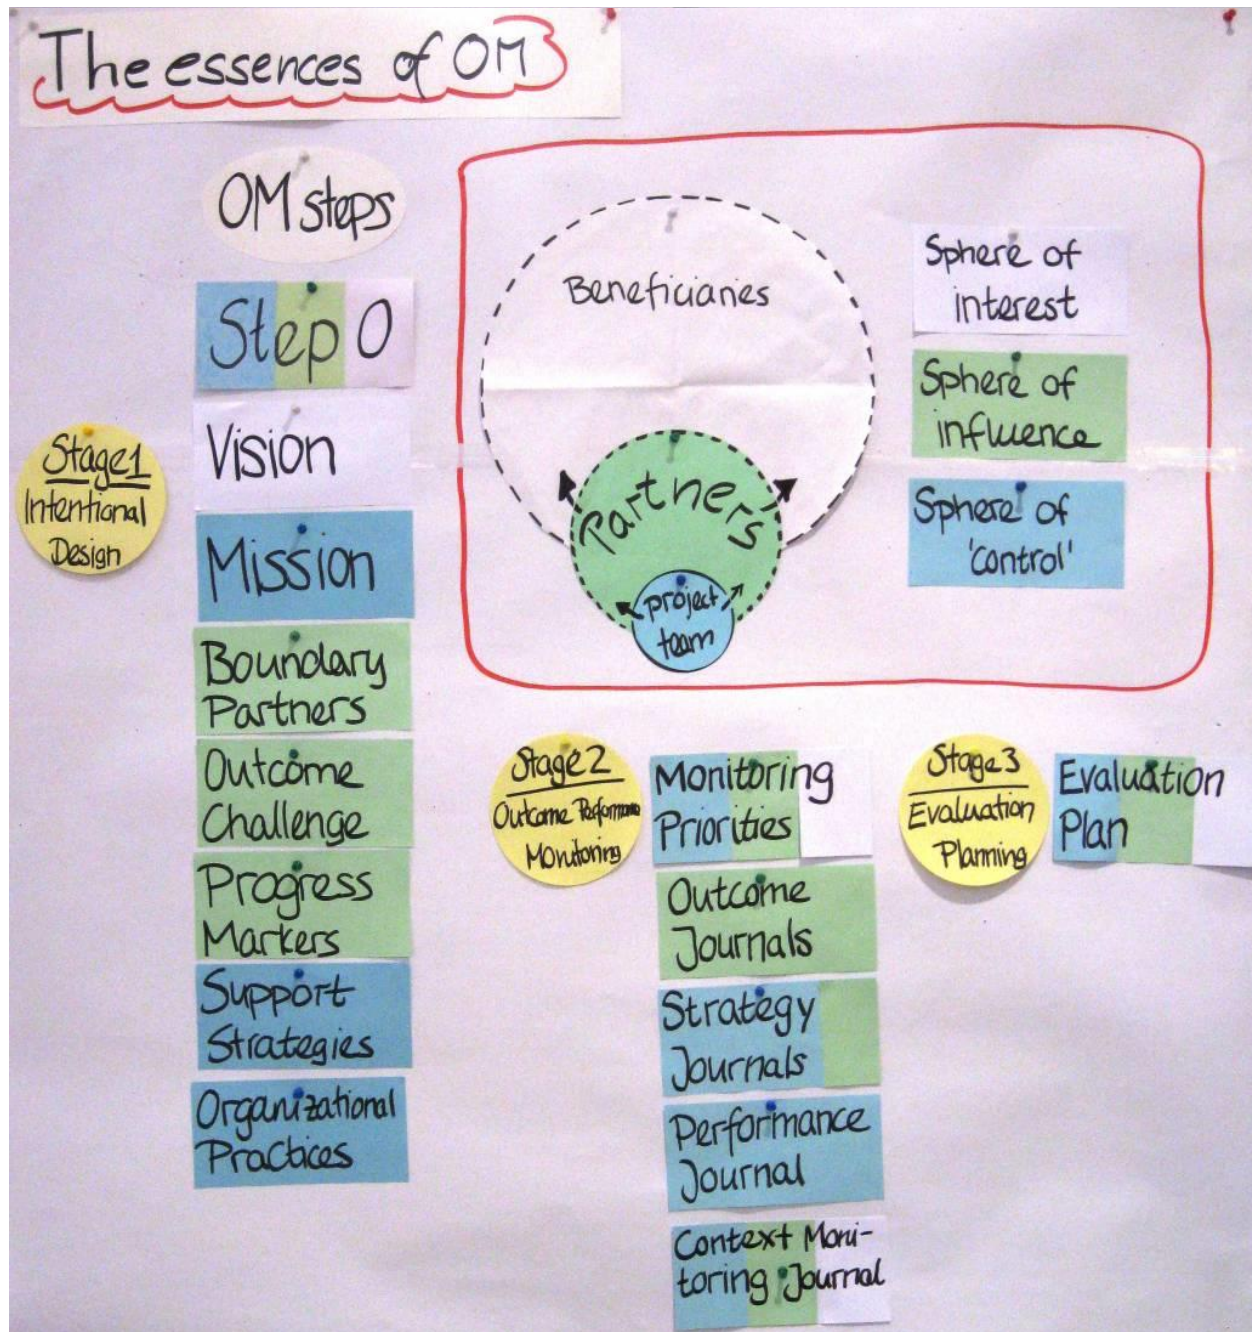 The essences of OM
OM steps
Step 0
Stage 1
Intentional
Design
Vision
Mission
Boundary
Partners
Outcome
Challenge
Progress
Markers
Support
Strategies
Organizational
Practices
Beneficiaries
Partners
project
team
Sphere of
interest
Sphere of
influence
Sphere of
'control'
Stage 2
Outcome Performance
Monitoring
Monitoring
Priorities
Outcome
Journals
Strategy
Journals
Performance
Journal
Context Moni-
toring Journal
Stage 3
Evaluation
Planning
Evaluation
Plan